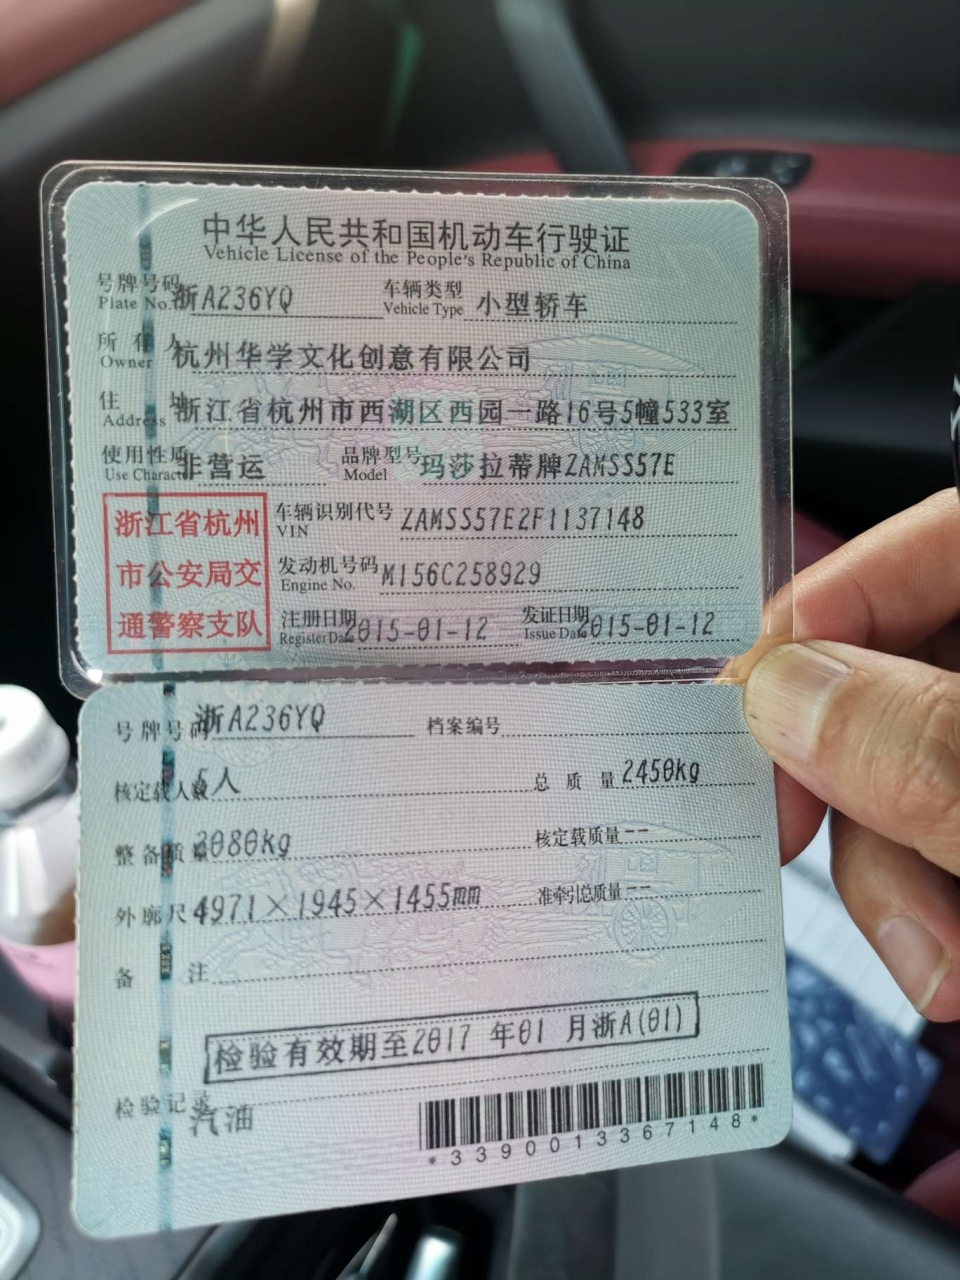 中华人民共和国机动车行驶证
Vehicle License of the People's Republic of China
号牌号码 浙A236YQ 车辆类型 小型轿车
Plate No. Vehicle Type
所有人 杭州华学文化创意有限公司
Owner
住址 浙江省杭州市西湖区西园一路16号5幢533室
Address
使用性质 非营运 品牌型号 玛莎拉蒂牌ZAMSS57E
Use Character Model
浙江省杭州
市公安局交
通警察支队
车辆识别代号 ZAMSS57E2F1137148
VIN
发动机号码 M156C258929
Engine No.
注册日期 2015-01-12 发证日期 2015-01-12
Register Date Issue Date
号牌号码 浙A236YQ 档案编号
核定载人数 5人 总质量 2450kg
整备质量 2080kg 核定载质量 --
外廓尺 4971×1945×1455mm 准牵引总质量 --
备注
检验有效期至2017 年01 月浙A(01)
检验记录 汽油
*3390013367148*